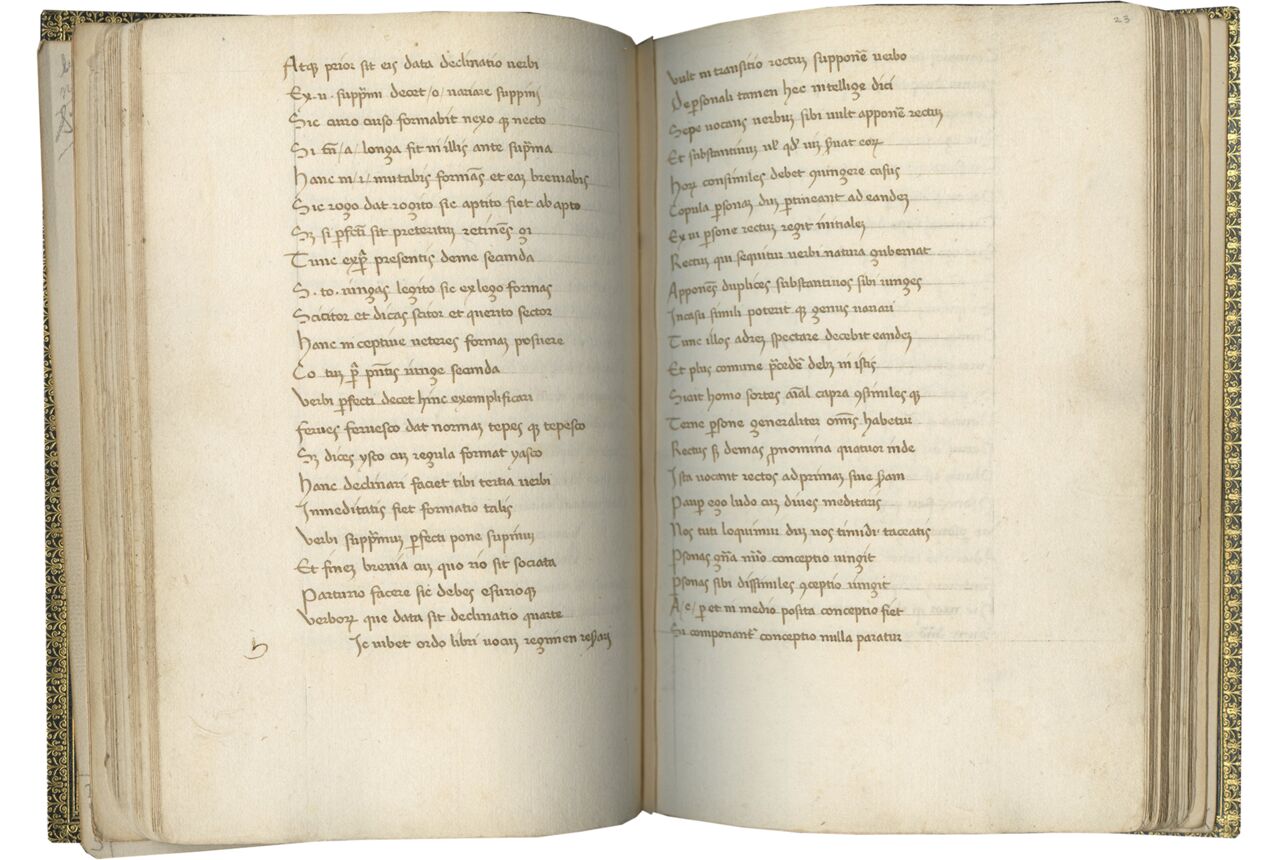 Atq prior sit eis data declinatio verbi
Ex . u . supp̄mi decet /o/ variare suppini
Sic curro curso formabit nexo q necto
Si /a/ longa sit in illis ante sup̄ma
Hanc in /i/ mutabis formāˢ et eaȝ breviabis
Sic rogo dat rogito sic aptito fiet ab apto
Sȝ si ꝑfecti sit preteritu retinēs gi
Tunc presentis deme secunda
S . to . iungas legito sic ex lego formas
Scititor et dicas scitor et querito sector
Hanc inceptive veteres formaȝ posuere
Co tuȝ iunge secunda
Verbi ꝑfecti decet hinc exemplificari
ferves fervesco dat normaȝ tepes q tepesco
Sȝ dices ysco cuȝ regula format yasco
Hanc declinari faciet tibi tertia verbi
In meditatis fiet formatio talis
Verbi supp̄muȝ ꝑfecti pone supinuȝ
Et fineȝ brevia cuȝ quo rio sit sociata
Parturio facere sic debes esurioq
Verborꝝ que data sit declinatio quarte
Ic iubet ordo libri vocuȝ regimen
h
23
Vult intransitio rectuȝ supponē verbo
De ꝑsonali tamen hec intellige dici
Sepe vocans verbuȝ sibi vult apponē rectuȝ
Et substantivuȝ eorꝝ
Horꝝ consimiles debet ꝯiungere casus
Copula ꝑsonaȝ duȝ ꝑtineant ad eandeȝ
Ex vi ꝑsone rectuȝ regit initialeȝ
Rectuȝ qui sequitur verbi natura gubernat
Apponens duplices substantivos sibi iunges
In casu simili poterit q genus variari
Tunc illos ad reȝ spectare decebit eandeȝ
Et plus comune p̄cedē debȝ in istis
Sunt homo sortes aīal capra ꝯsimiles q
Terne ꝑsone generaliter omīs habetur
Rectus sꝫ demas ꝓnomina quatuor inde
Ista vocant rectos ad primaȝ sive
Paup ego ludo cuȝ dives meditaris
Nos tuti loquimur duȝ vos timidi taceatis
Ꝑsonas conceptio iungit
Ꝑsonas sibi dissimiles ꝯceptio iungit
A /e/ ꝑ et in medio posita conceptio fiet
Si componantʳ conceptio nulla paratur